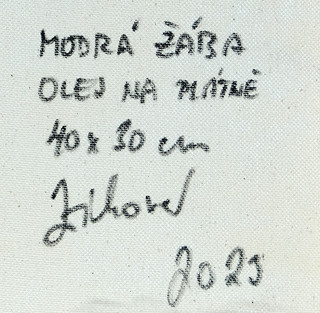 MODRÁ ŽÁBA
OLEJ NA PLÁTNĚ
40 x 30 cm
2025